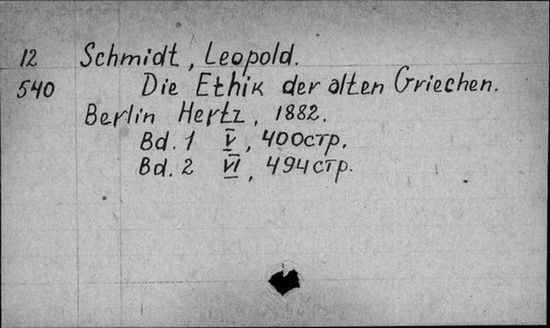 12 Schmidt, Leopold.
540 Die Ethik der alten Griechen.
Berlin Hertz, 1882.
Bd. 1 V, 400стр.
Bd. 2 VI, 494стр.